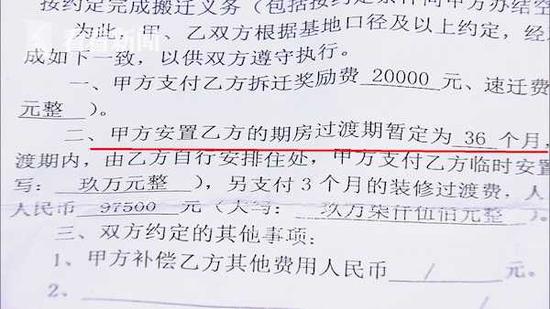 按约定完成搬迁义务（包括按约定条件向甲方办结空
为此，甲、乙双方根据基地口径及以上约定，经
成如下一致，以供双方遵守执行。
一、甲方支付乙方拆迁奖励费 20000 元、速迁费
元整）。
二、甲方安置乙方的期房过渡期暂定为 36 个月，
渡期内，由乙方自行安排住处，甲方支付乙方临时安置
写：玖万元整），另支付3个月的装修过渡费，
人民币 97500 元（大写：玖万柒仟伍佰元整）。
三、双方约定的其他事项：
1、甲方补偿乙方其他费用人民币 / 元。
2、
看看新闻